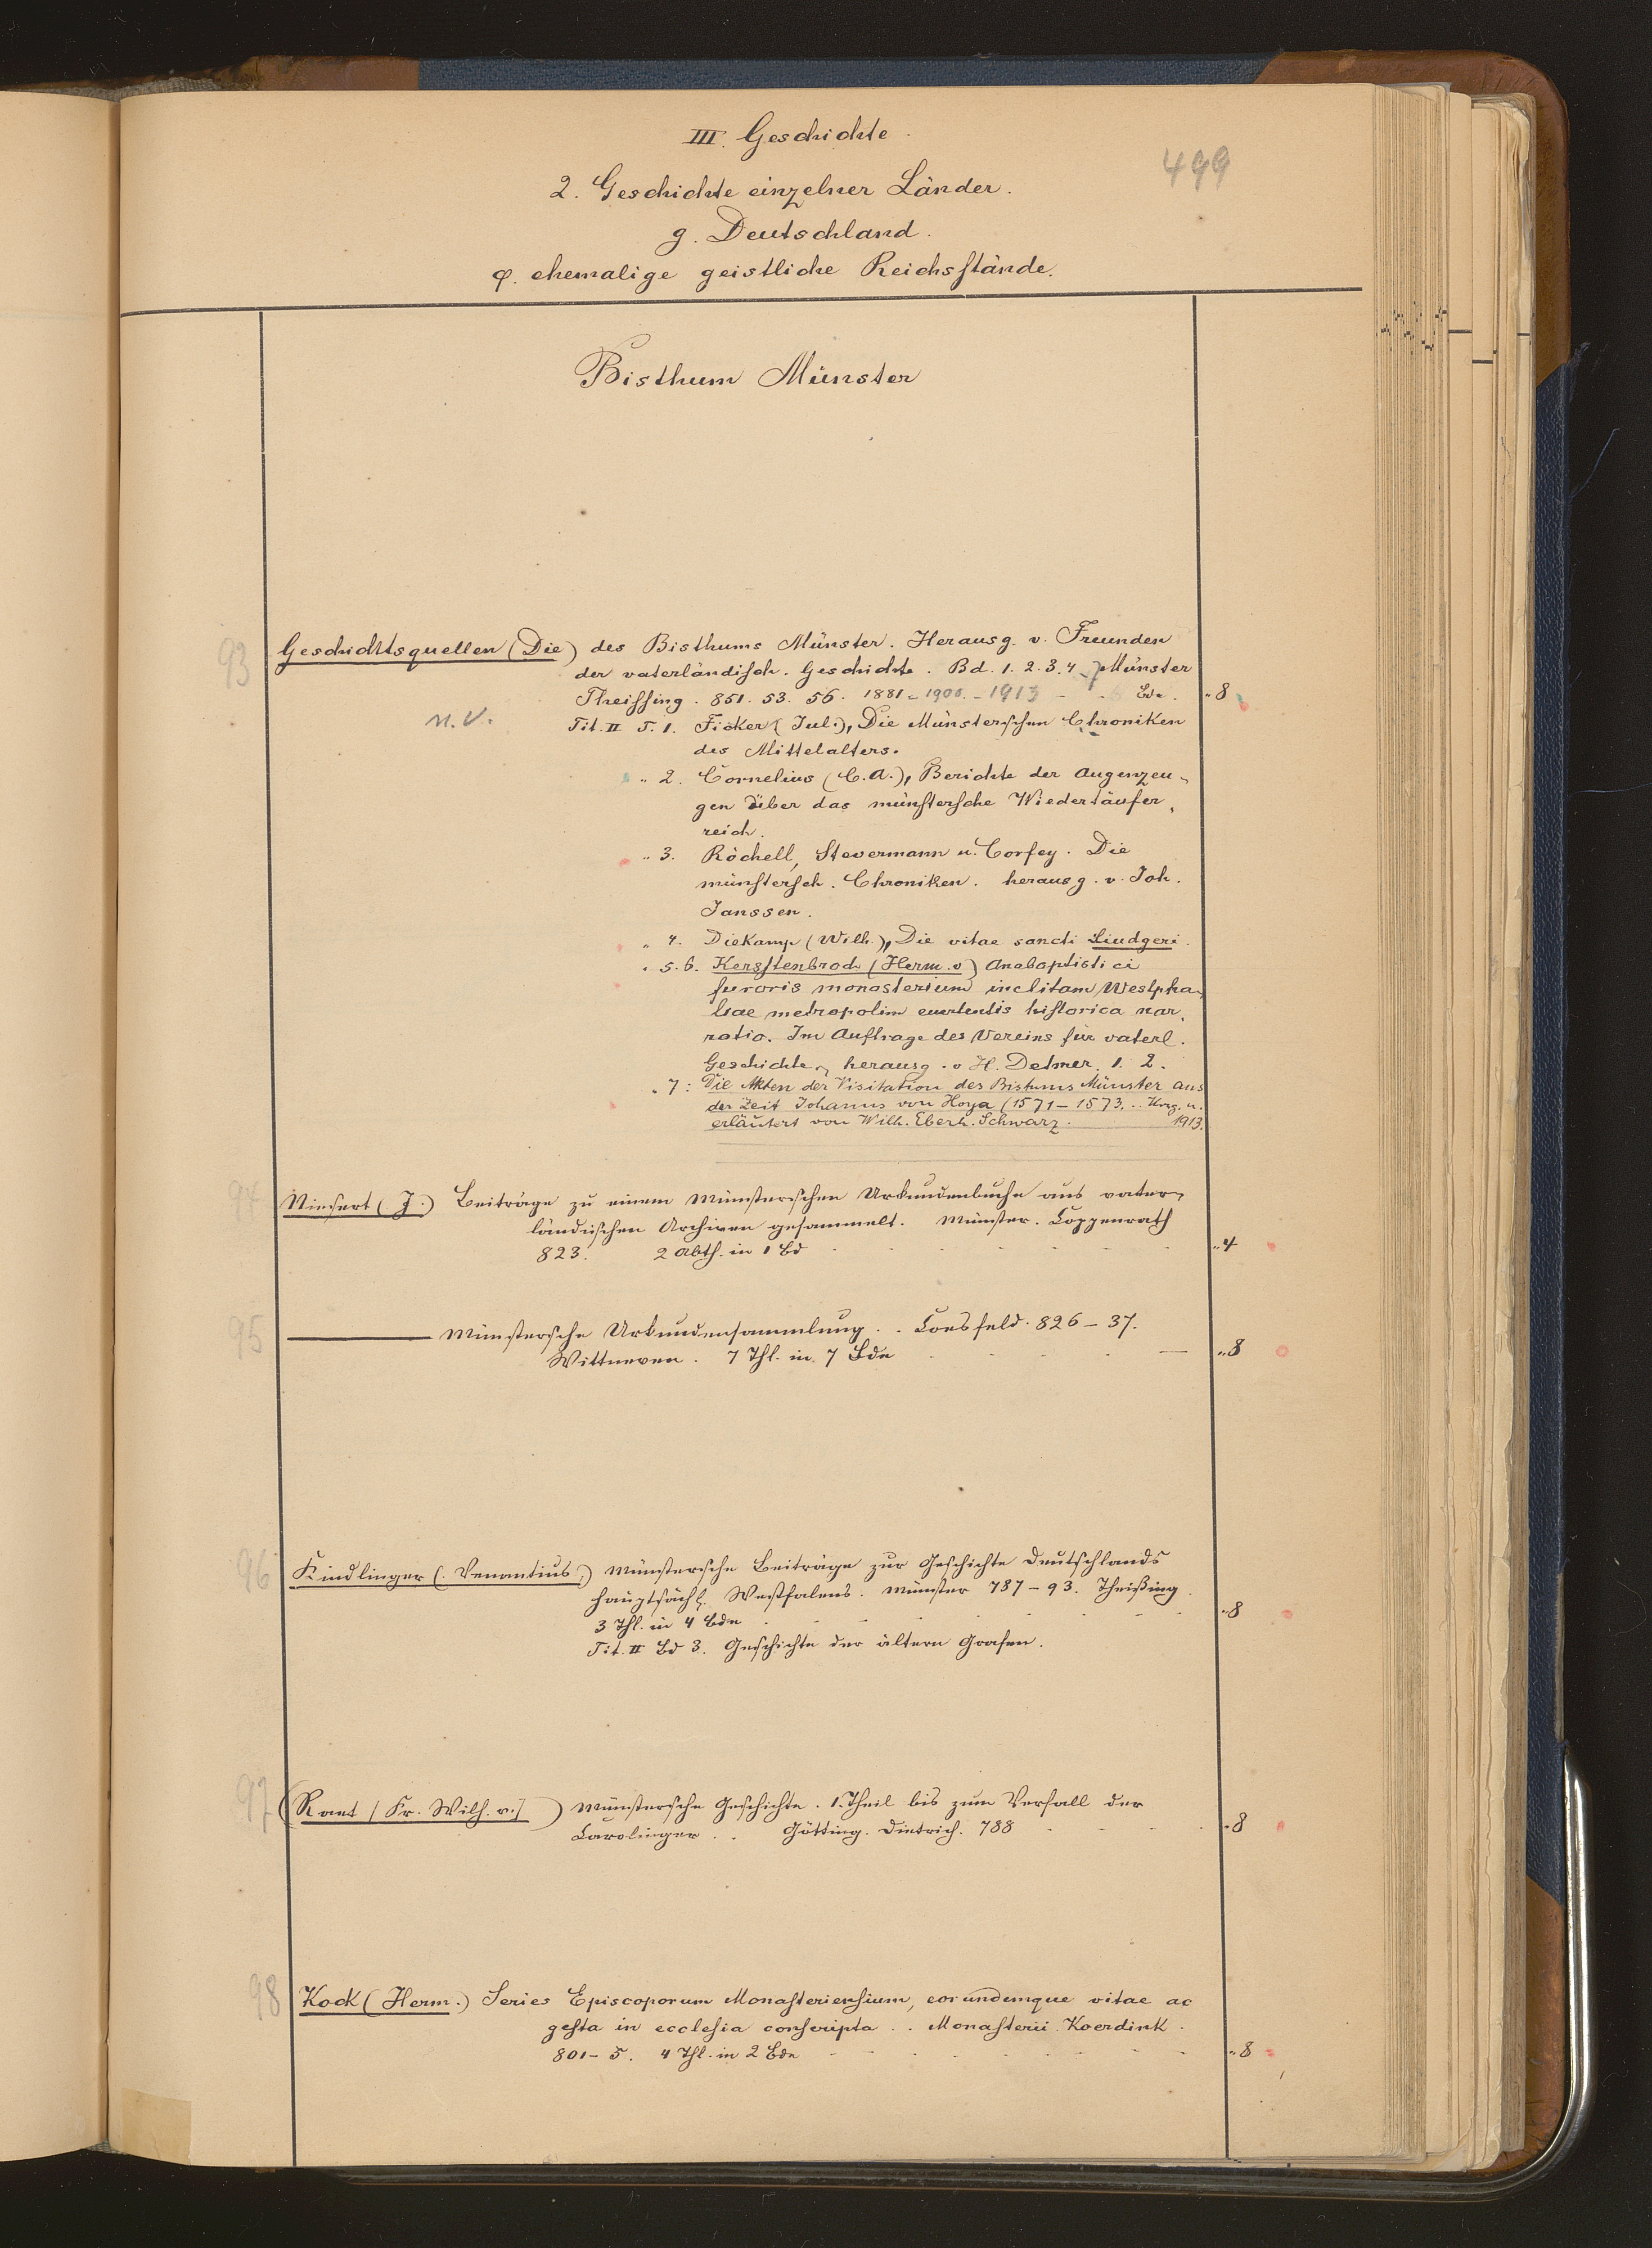 III. Geschichte.
499
2. Geschichte einzelner Länder.
g. Deutschland.
φ. ehemalige geistliche Reichsstände.
Bisthum Münster
93
Geschichtsquellen (Die) des Bisthums Münster. Herausg. v. Freunden
der vaterländisch. Geschichte. Bd. 1. 2. 3. 4 - 7 Münster
Theissing. 851. 53. 56. 1881 - 1900. - 1913 - Bde. „ 8
n. v.
Tit. II T. 1. Ficker (Jul.), Die Münsterschen Chroniken
des Mittelalters.
„ 2. Cornelius (C. A.), Berichte der Augenzeu-
gen über das münstersche Wiedertäufer-
reich.
„ 3. Röchell, Stevermann u. Corfey. Die
münstersch. Chroniken. herausg. v. Joh.
Janssen.
„ 4. Diekamp (Wilh.), Die vitae sancti Liudgeri.
„ 5. 6. Kerssenbroch (Herm. v) Anabaptistici
furoris monasterium inclitam Westpha-
liae metropolim evertentis historica nar-
ratio. Im Auftrage des Vereins für vaterl.
Geschichte, herausg. v H. Detmer. 1. 2.
„ 7: Die Akten der Visitation des Bistums Münster aus
der Zeit Johanns von Hoya (1571 - 1573. .. Hrsg. u.
erläutert von Wilh. Eberh. Schwarz. 1913.
94
Niesert (J.) Beiträge zu einem Münsterschen Urkundenbuche aus vater-
ländischen Archiven gesammelt. Münster. Coppenrath
823. 2 Abth. in 1 Bd „ 4
95
——— Münstersche Urkundensammlung. . Coesfeld. 826 - 37.
Wittneven. 7 Thl. in 7 Bde „ 8
96
Kindlinger (: Venantius :) Münstersche Beiträge zur Geschichte Deutschlands
hauptsächl. Westfalens. Münster 787 - 93. Theißing.
3 Thl. in 4 Bde „ 8
Tit. II Bd 3. Geschichte der ältern Grafen.
97
(Raet [Fr. Wilh. v.] ) Münstersche Geschichte. 1. Theil bis zum Verfall der
Carolinger . . Götting. Dietrich. 788 „ 8
98
Kock (Herm.) Series Episcoporum Monasteriensium, eorundemque vitae ac
gesta in ecclesia conscripta . . Monasterii. Koerdink.
801 - 5. 4 Thl. in 2 Bde „ 8